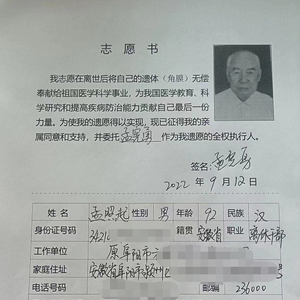 志愿书
我志愿在离世后将自己的遗体（角膜）无偿
奉献给祖国医学科学事业，为我国医学教育、科
学研究和提高疾病防治能力贡献自己最后一份
力量。为使我的遗愿得以实现，现已征得我的亲
属同意和支持，并委托 作为我遗愿的全权执行人。
签名:
2022年9月12日
姓名 孟昭起 性别 男 年龄 92 民族 汉
身份证号码 3421 籍贯 安徽省 职业 离休干部
工作单位 原阜阳市
家庭住址 安徽省阜阳市颍州区 号
电话号码 邮编 236000